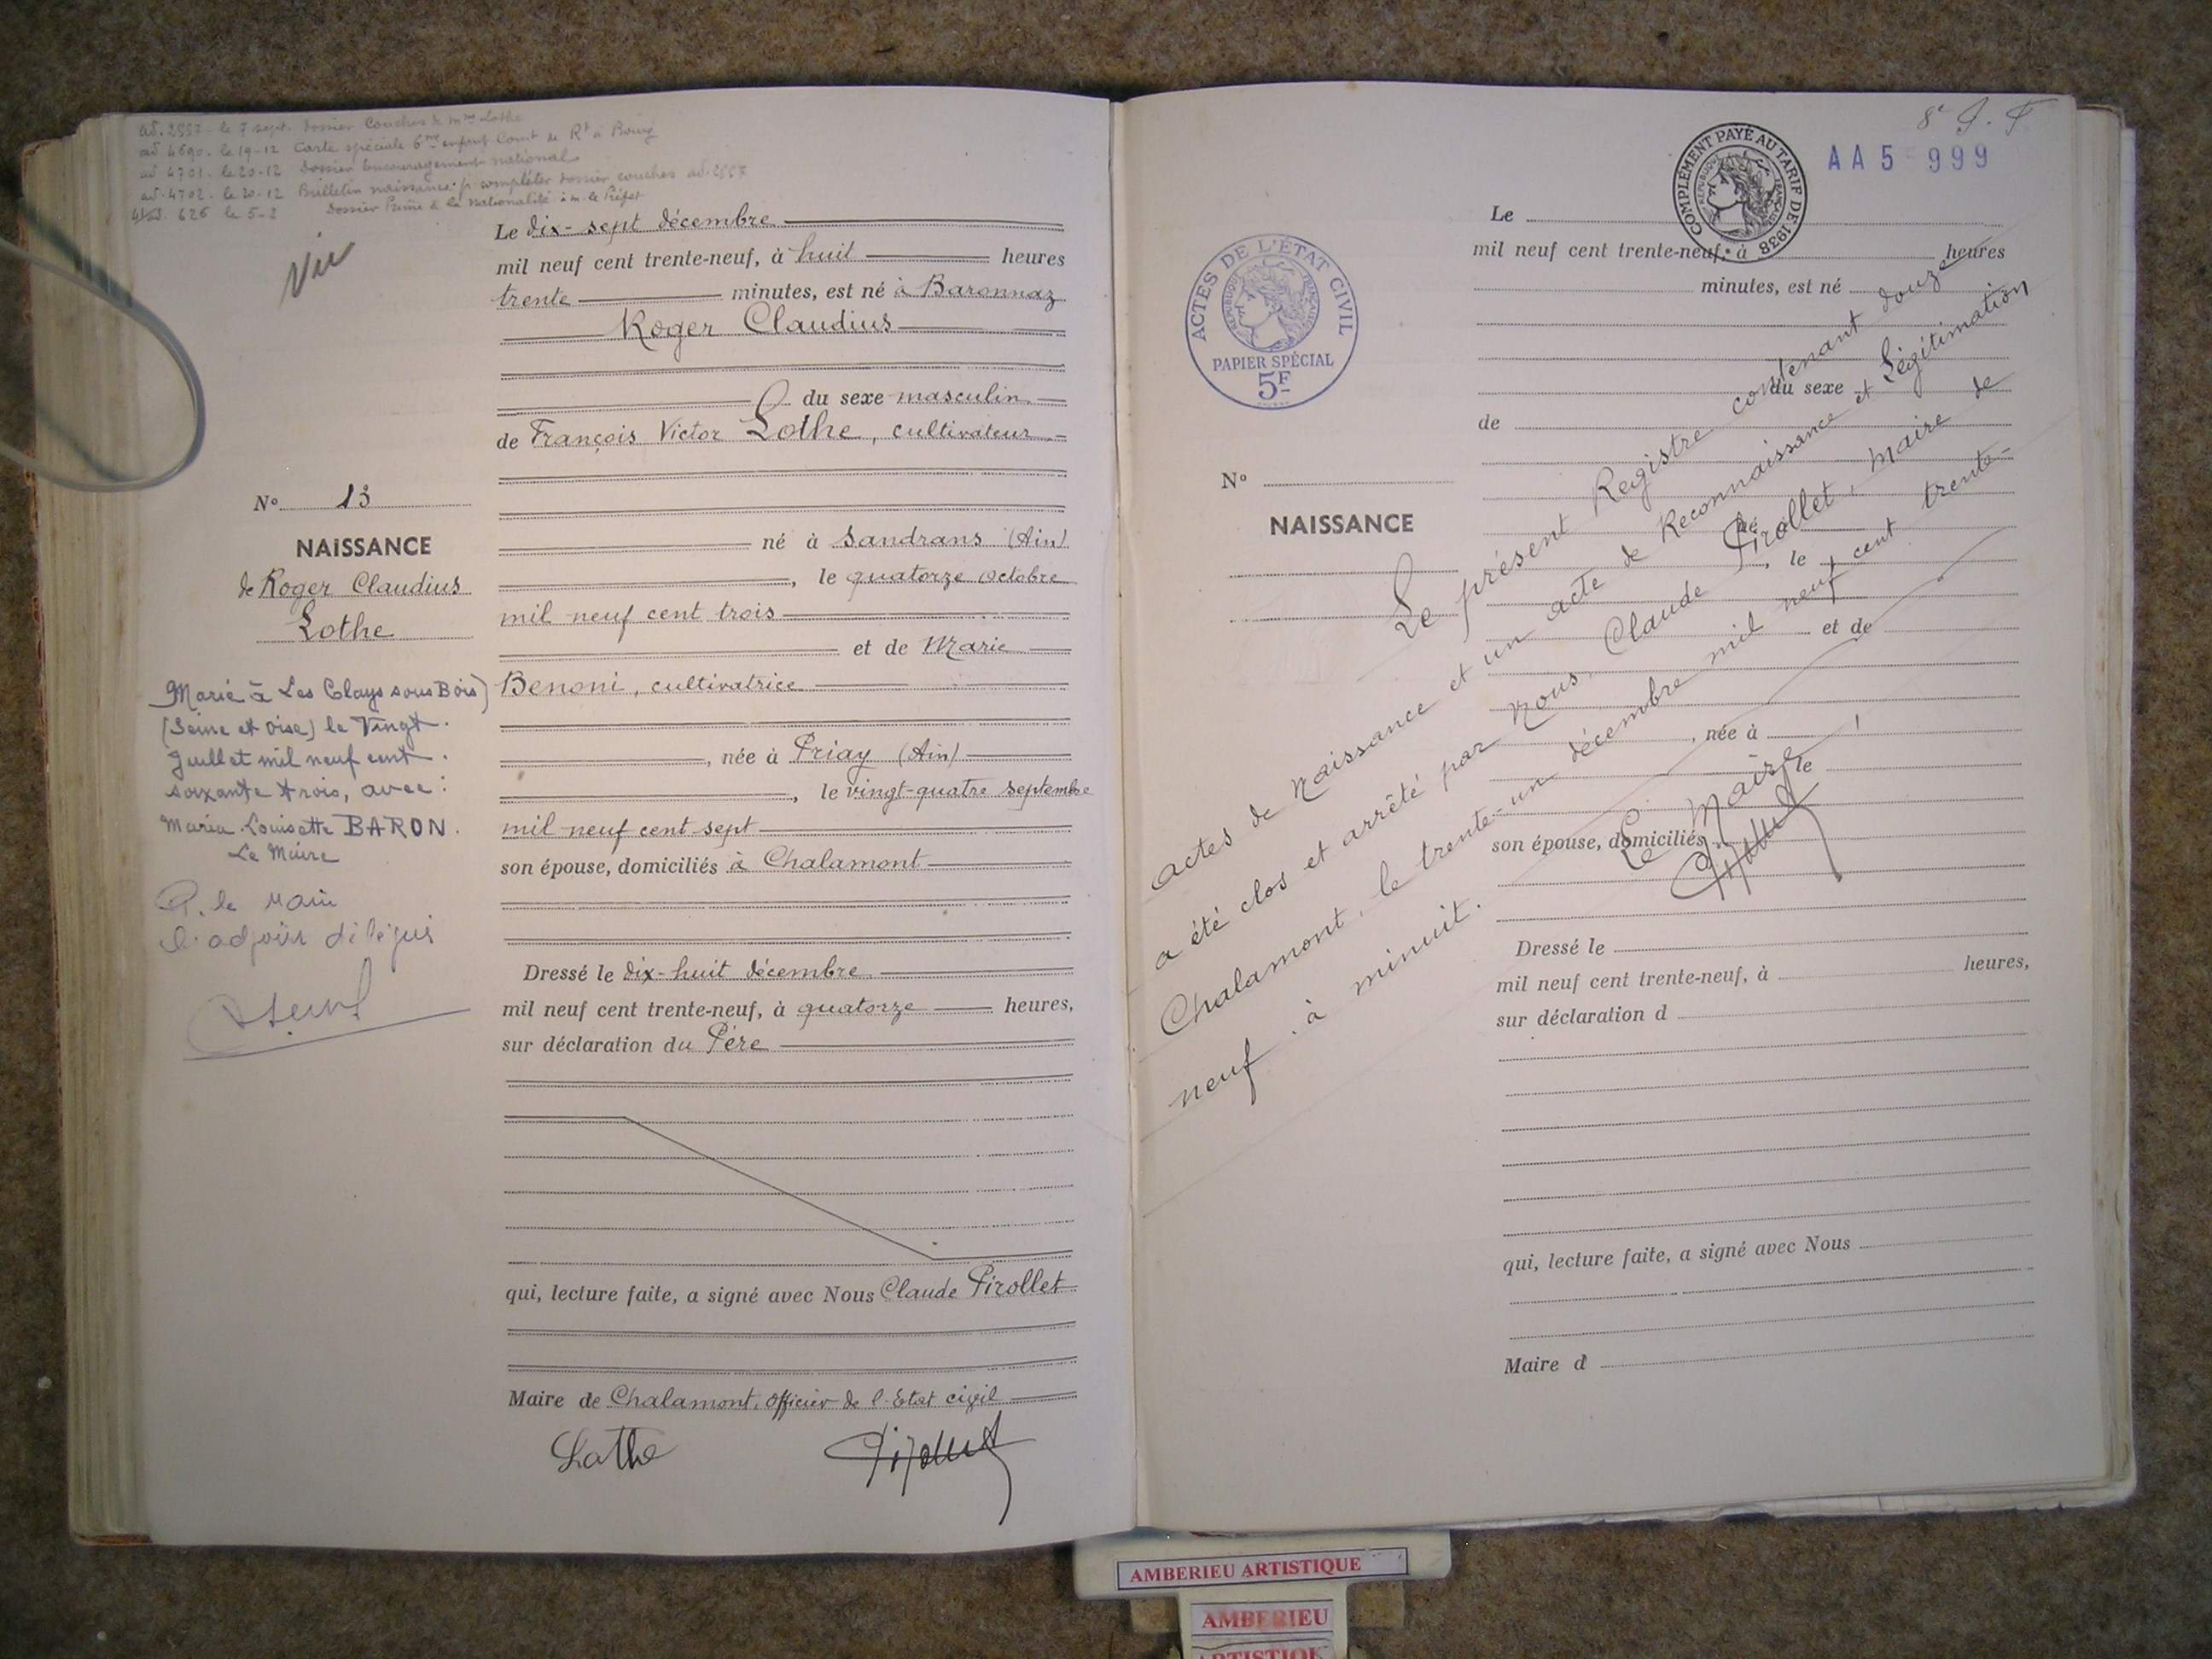 ad. 2557 - le 7 sept. Dossier Couches de Mme Lothe
ad 4690 - le 19-12 Carte spéciale 6me enfant Cont de Rt à Bourg
ad 4701 - le 20-12 Dossier Encouragement national
ad. 4702 - le 20-12 Bulletin naissance p. compléter dossier couches ad. 2557
626 le 5-2 Dossier Prime à la Nationalité à m. le Préfet
Vu
N° 13
NAISSANCE
de Roger Claudius
Lothe
Marié à Les Clays sous Bois)
(Seine et Oise) le Vingt
Juillet mil neuf cent
soixante trois, avec :
Maria Louisette BARON.
Le Maire
P. le Maire
l'adjoint délégué
Le dix-sept décembre
mil neuf cent trente-neuf, à huit heures
trente minutes, est né à Baronnaz
Roger Claudius
du sexe masculin
de François Victor Lothe, cultivateur
né à Sandrans (Ain)
, le quatorze Octobre
mil neuf cent trois
et de Marie
Benoni, cultivatrice
, née à Priay (Ain)
, le vingt-quatre septembre
mil neuf cent sept
son épouse, domiciliés à Chalamont
Dressé le dix-huit décembre
mil neuf cent trente-neuf, à quatorze heures,
sur déclaration du Père
qui, lecture faite, a signé avec Nous Claude Pirollet
Maire de Chalamont, Officier de l'Etat civil
Lothe Pirollet
8e
AA5 999
COMPLÉMENT PAYÉ AU TARIF DE 1938
RÉPUBLIQUE FRANÇAISE
ACTES DE L'ÉTAT CIVIL
RÉPUBLIQUE FRANÇAISE
PAPIER SPÉCIAL
5F
N°
NAISSANCE
Le
mil neuf cent trente-neuf, à heures
minutes, est né
du sexe
de
né à
, le
et de
, née à
le
son épouse, domiciliés
Dressé le
mil neuf cent trente-neuf, à heures,
sur déclaration d
qui, lecture faite, a signé avec Nous
Maire d
Le présent Registre contenant douze
actes de Naissance et un acte de Reconnaissance et Légitimation
a été clos et arrêté par Nous, Claude Pirollet, Maire de
Chalamont, le trente-un décembre mil neuf cent trente-
neuf à minuit.
Le Maire,
Pirollet
AMBERIEU ARTISTIQUE
AMBERIEU
ARTISTIQUE